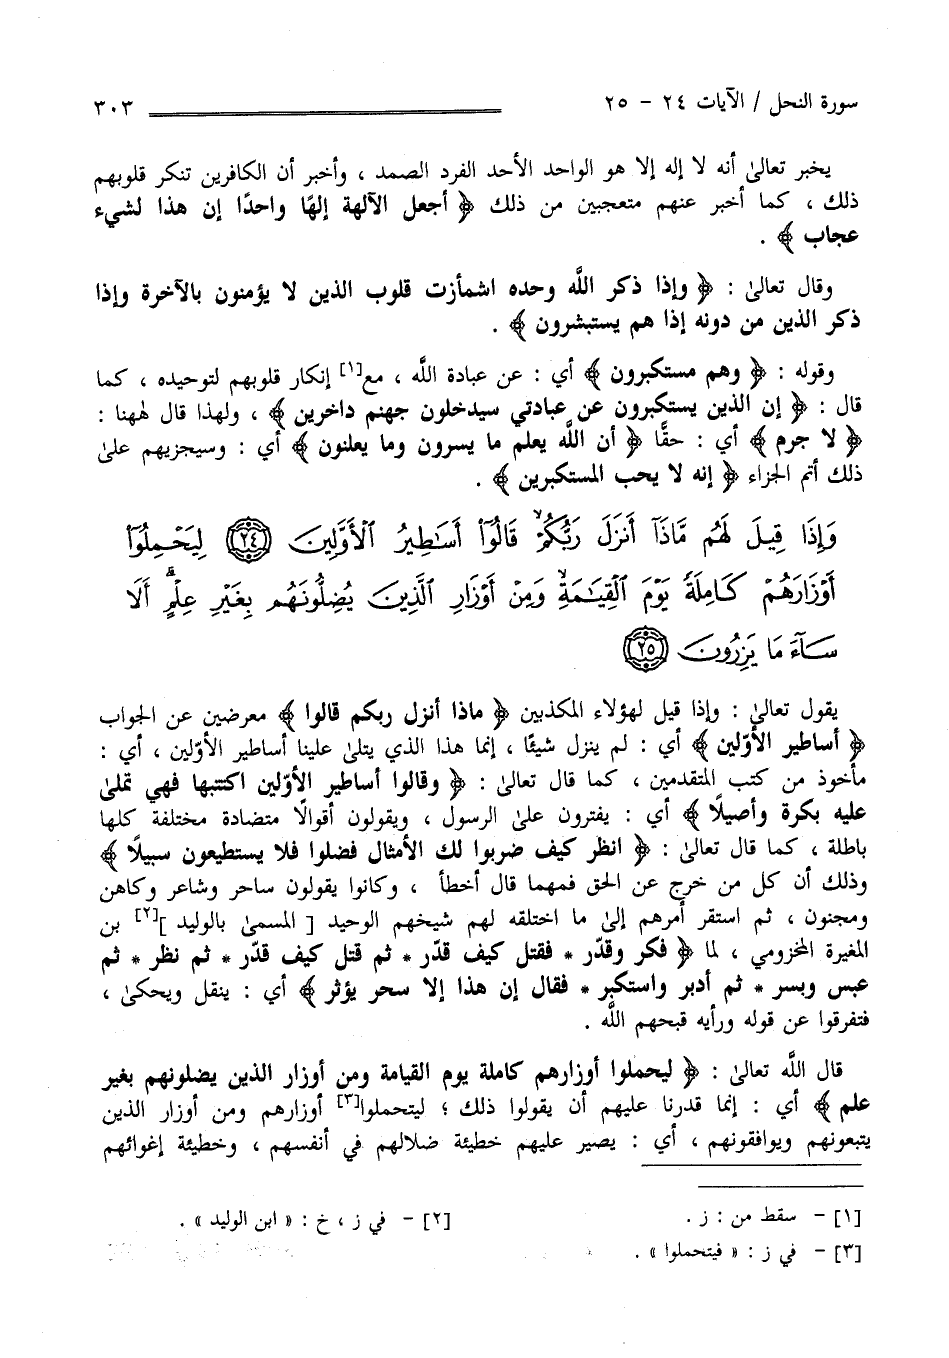 سورة النحل / الآيات ٢٤ - ٢٥ ٣٠٣
يخبر تعالىٰ أنه لا إله إلا هو الواحد الأحد الفرد الصمد ، وأخبر أن الكافرين تنكر قلوبهم
ذلك ، كما أخبر عنهم متعجبين من ذلك ﴿ أجعل الآلهة إلهًا واحدًا إن هذا لشيء
عجاب ﴾ .
وقال تعالىٰ : ﴿ وإذا ذكر اللَّه وحده اشمأزت قلوب الذين لا يؤمنون بالآخرة وإذا
ذكر الذين من دونه إذا هم يستبشرون ﴾ .
وقوله : ﴿ وهم مستكبرون ﴾ أي : عن عبادة اللَّه ، مع[١] إنكار قلوبهم لتوحيده ، كما
قال : ﴿ إن الذين يستكبرون عن عبادتي سيدخلون جهنم داخرين ﴾ ، ولهذا قال لههنا :
﴿ لا جرم ﴾ أي : حقًّا ﴿ أن اللَّه يعلم ما يسرون وما يعلنون ﴾ أي : وسيجزيهم علىٰ
ذلك أتم الجزاء ﴿ إنه لا يحب المستكبرين ﴾ .
وَإِذَا قِيلَ لَهُم مَّاذَآ أَنزَلَ رَبُّكُمْ ۙ قَالُوٓا۟ أَسَٰطِيرُ ٱلْأَوَّلِينَ ﴿٢٤﴾ لِيَحْمِلُوٓا۟
أَوْزَارَهُمْ كَامِلَةً يَوْمَ ٱلْقِيَٰمَةِ ۙ وَمِنْ أَوْزَارِ ٱلَّذِينَ يُضِلُّونَهُم بِغَيْرِ عِلْمٍ ۗ أَلَا
سَآءَ مَا يَزِرُونَ ﴿٢٥﴾
يقول تعالىٰ : وإذا قيل لهؤلاء المكذبين ﴿ ماذا أنزل ربكم قالوا ﴾ معرضين عن الجواب
﴿ أساطير الأوّلين ﴾ أي : لم ينزل شيئًا ، إنما هذا الذي يتلىٰ علينا أساطير الأوّلين ، أي :
مأخوذ من كتب المتقدمين ، كما قال تعالىٰ : ﴿ وقالوا أساطير الأوّلين اكتتبها فهي تملىٰ
عليه بكرة وأصيلًا ﴾ أي : يفترون علىٰ الرسول ، ويقولون أقوالًا متضادة مختلفة كلها
باطلة ، كما قال تعالىٰ : ﴿ انظر كيف ضربوا لك الأمثال فضلوا فلا يستطيعون سبيلًا ﴾
وذلك أن كل من خرج عن الحق فمهما قال أخطأ ، وكانوا يقولون ساحر وشاعر وكاهن
ومجنون ، ثم استقر أمرهم إلىٰ ما اختلقه لهم شيخهم الوحيد [ المسمىٰ بالوليد ][٢] بن
المغيرة المخزومي ، لما ﴿ فكر وقدّر * فقتل كيف قدّر * ثم قتل كيف قدّر * ثم نظر * ثم
عبس وبسر * ثم أدبر واستكبر * فقال إن هذا إلا سحر يؤثر ﴾ أي : ينقل ويحكىٰ ،
فتفرقوا عن قوله ورأيه قبحهم اللَّه .
قال اللَّه تعالىٰ : ﴿ ليحملوا أوزارهم كاملة يوم القيامة ومن أوزار الذين يضلونهم بغير
علم ﴾ أي : إنما قدرنا عليهم أن يقولوا ذلك ؛ ليتحملوا[٣] أوزارهم ومن أوزار الذين
يتبعونهم ويوافقونهم ، أي : يصير عليهم خطيئة ضلالهم في أنفسهم ، وخطيئة إغوائهم
[١] - سقط من : ز . [٢] - في ز ، خ : « ابن الوليد » .
[٣] - في ز : « فيتحملوا » .